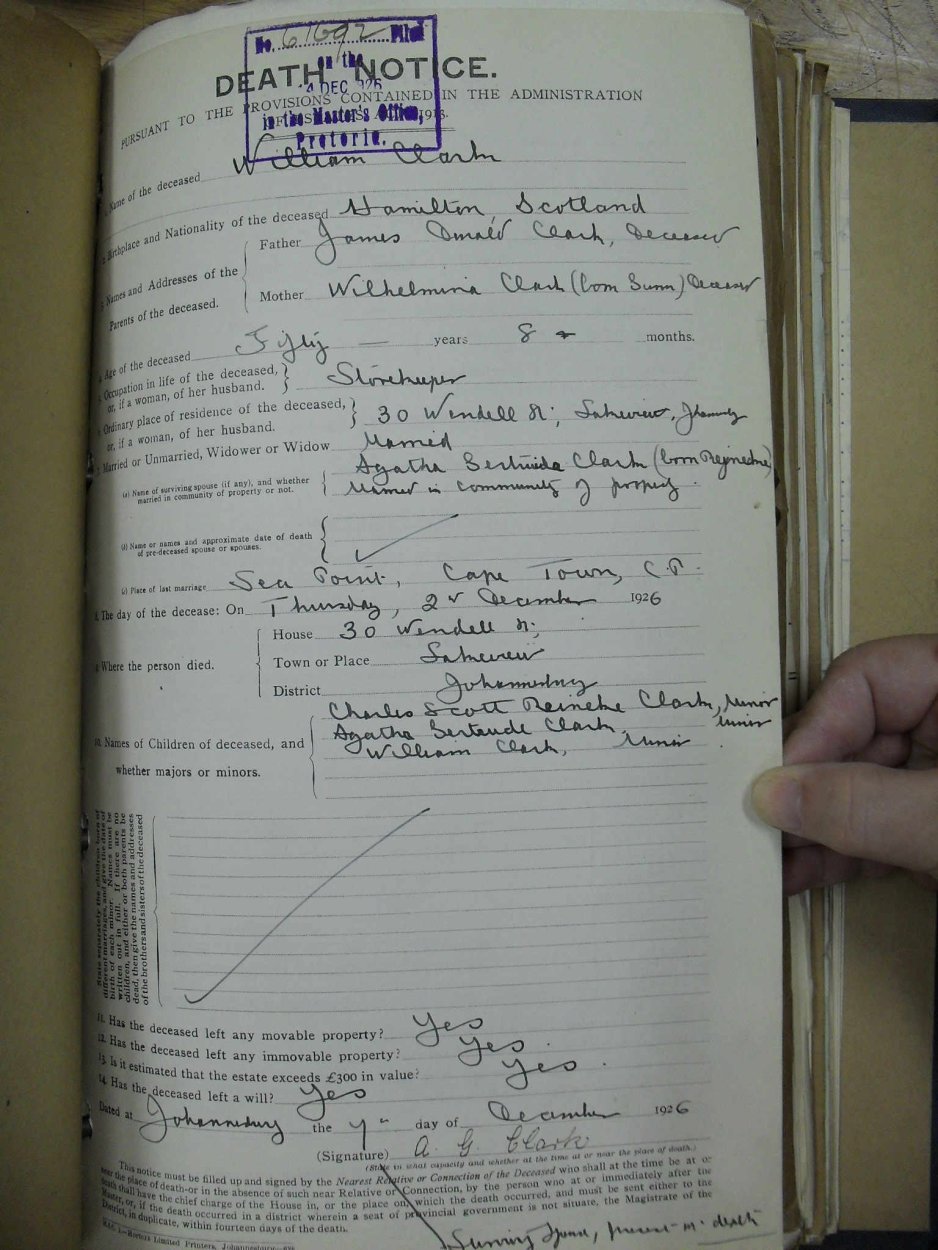 No. 61692 Filed
on the
DEC 1926
in the Master's Office,
Pretoria.
DEATH NOTICE.
PURSUANT TO THE PROVISIONS CONTAINED IN THE ADMINISTRATION
1913.
1. Name of the deceased William Clark
2. Birthplace and Nationality of the deceased Hamilton, Scotland
3. Names and Addresses of the Parents of the deceased.
Father James Donald Clark, Deceased
Mother Wilhelmina Clark (born Bunn) Deceased
4. Age of the deceased Fifty — years 8 months.
5. Occupation in life of the deceased, or, if a woman, of her husband. Storekeeper
6. Ordinary place of residence of the deceased, or, if a woman, of her husband. 30 Wendell St; Lakeview, Johannesburg
7. Married or Unmarried, Widower or Widow Married
(a) Name of surviving spouse (if any), and whether married in community of property or not. Agatha Gertruida Clark (born Reynecke)
Married in community of property.
(b) Name or names and approximate date of death of pre-deceased spouse or spouses.
(c) Place of last marriage Sea Point, Cape Town, C.P.
8. The day of the decease: On Thursday, 2nd December 1926
9. Where the person died.
House 30 Wendell St;
Town or Place Lakeview
District Johannesburg
10. Names of Children of deceased, and whether majors or minors.
Charles Scott Reineke Clark, Minor
Agatha Gertrude Clark, Minor
William Clark, Minor
State separately the children born of
different marriages, and give the date of
birth of each minor. Names must be
written out in full. If there are no
children, and either or both parents be
dead, then give the names and addresses
of the brothers and sisters of the deceased
11. Has the deceased left any movable property? Yes
12. Has the deceased left any immovable property? Yes.
13. Is it estimated that the estate exceeds £300 in value? Yes.
14. Has the deceased left a will? Yes
Dated at Johannesburg the day of December 1926
(Signature) A. G. Clark
(State in what capacity and whether at the time at or near the place of death.)
This notice must be filled up and signed by the Nearest Relative or Connection of the Deceased who shall at the time be at or
near the place of death—or in the absence of such near Relative or Connection, by the person who at or immediately after the
death shall have the chief charge of the House in, or the place on, which the death occurred, and must be sent either to the
Master, or, if the death occurred in a district wherein a seat of provincial government is not situate, the Magistrate of the
District, in duplicate, within fourteen days of the death.
Surviving spouse, present at death
Horters Limited Printers, Johannesburg